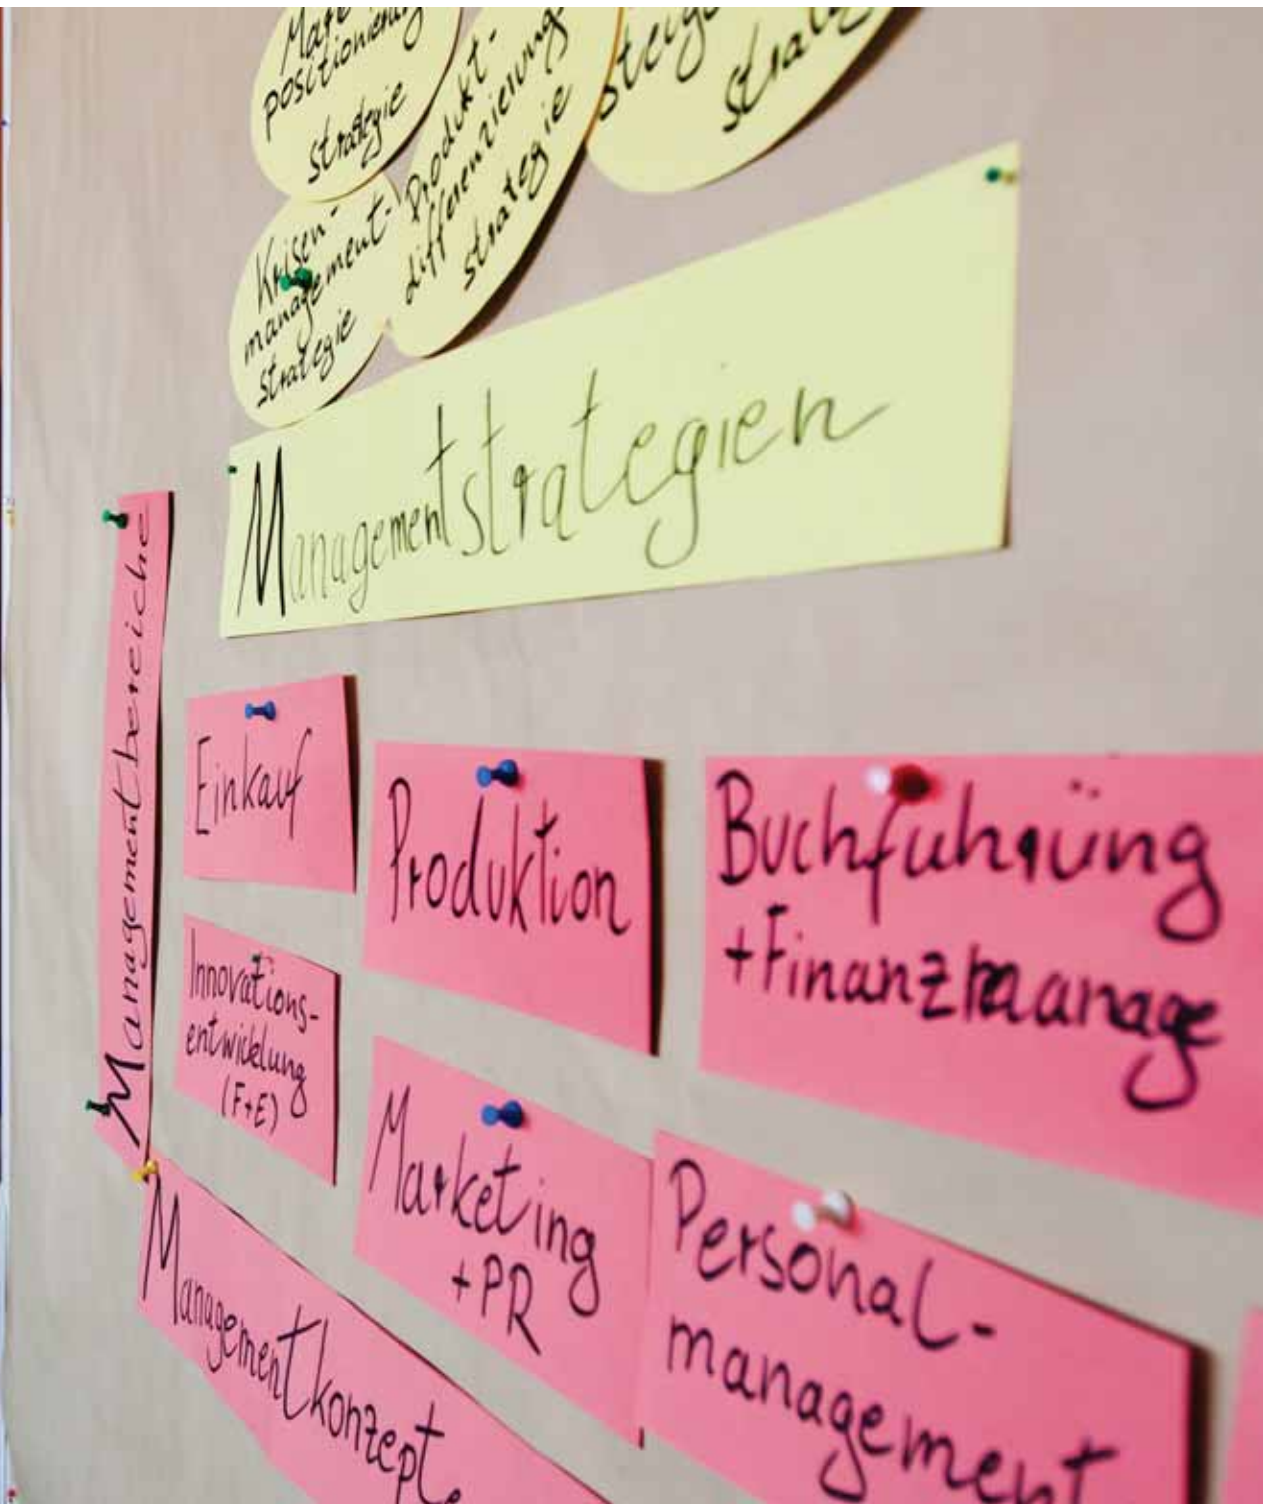 positionierung
strategie
Produkt-
differenzierungs
strategie
Krisen-
management-
strategie
Managementstrategien
Managementbereiche
Einkauf
Produktion
Buchfuhrüng
+Finanzmanage
Innovations-
entwicklung
(F+E)
Marketing
+PR
Personal-
management
Managementkonzepte